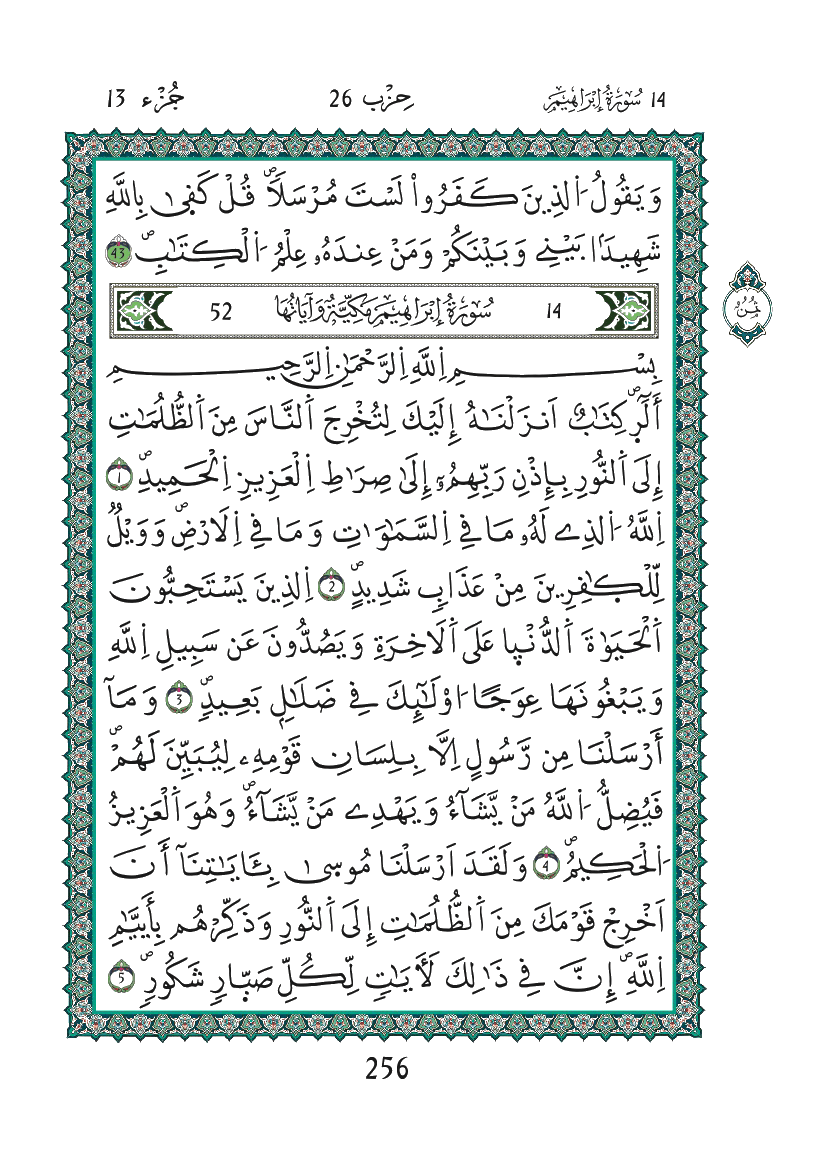 14 سُورَةُ إِبْرَاهِيمَ حِزْب 26 جُزْء 13
وَيَقُولُ اُ۬لذِينَ كَفَرُواْ لَسْتَ مُرْسَلاٗۖ قُلْ كَف۪ىٰ بِاللَّهِ
شَهِيداَۢ بَيْنِے وَبَيْنَكُمْ وَمَنْ عِندَهُۥ عِلْمُ اُ۬لْكِتَٰبِۖ 43
ثُمُن
14 سُورَةُ إِبْرَاهِيمَ مَكِيَّةٌ وَآيَاتُهَا 52
بِسْمِ اِ۬للَّهِ اِ۬لرَّحْمَٰنِ اِ۬لرَّحِيمِ
أَلَٓرۖ كِتَٰبٌ اَنزَلْنَٰهُ إِلَيْكَ لِتُخْرِجَ اَ۬لنَّاسَ مِنَ اَ۬لظُّلُمَٰتِ
إِلَى اَ۬لنُّورِ بِإِذْنِ رَبِّهِمُۥٓ إِلَىٰ صِرَٰطِ اِ۬لْعَزِيزِ اِ۬لْحَمِيدِۖ 1
اِ۬للَّهِ اِ۬لذِے لَهُۥ مَا فِے اِ۬لسَّمَٰوَٰتِ وَمَا فِے اِ۬لَارْضِۖ وَوَيْلٞ
لِّلْكٰ۪فِرِينَ مِنْ عَذَابٖ شَدِيدٍۖ 2 اِ۬لذِينَ يَسْتَحِبُّونَ
اَ۬لْحَيَوٰةَ اَ۬لدُّنْي۪ا عَلَى اَ۬لَاخِرَةِ وَيَصُدُّونَ عَن سَبِيلِ اِ۬للَّهِ
وَيَبْغُونَهَا عِوَجاً اُوْلَٰٓئِكَ فِے ضَلَٰلِۢ بَعِيدٖۖ 3 وَمَآ
أَرْسَلْنَا مِن رَّسُولٍ اِلَّا بِلِسَانِ قَوْمِهِۦ لِيُبَيِّنَ لَهُمْۖ
فَيُضِلُّ اُ۬للَّهُ مَنْ يَّشَآءُ وَيَهْدِے مَنْ يَّشَآءُۖ وَهُوَ اَ۬لْعَزِيزُ
اُ۬لْحَكِيمُۖ 4 وَلَقَدَ اَرْسَلْنَا مُوس۪ىٰ بِـَٔايَٰتِنَآ أَنَ
اَخْرِجْ قَوْمَكَ مِنَ اَ۬لظُّلُمَٰتِ إِلَى اَ۬لنُّورِ وَذَكِّرْهُم بِأَيَّيٰمِ
اِ۬للَّهِۖ إِنَّ فِے ذَٰلِكَ لَأٓيَٰتٖ لِّكُلِّ صَبّ۪ارٖ شَكُورٖۖ 5
256